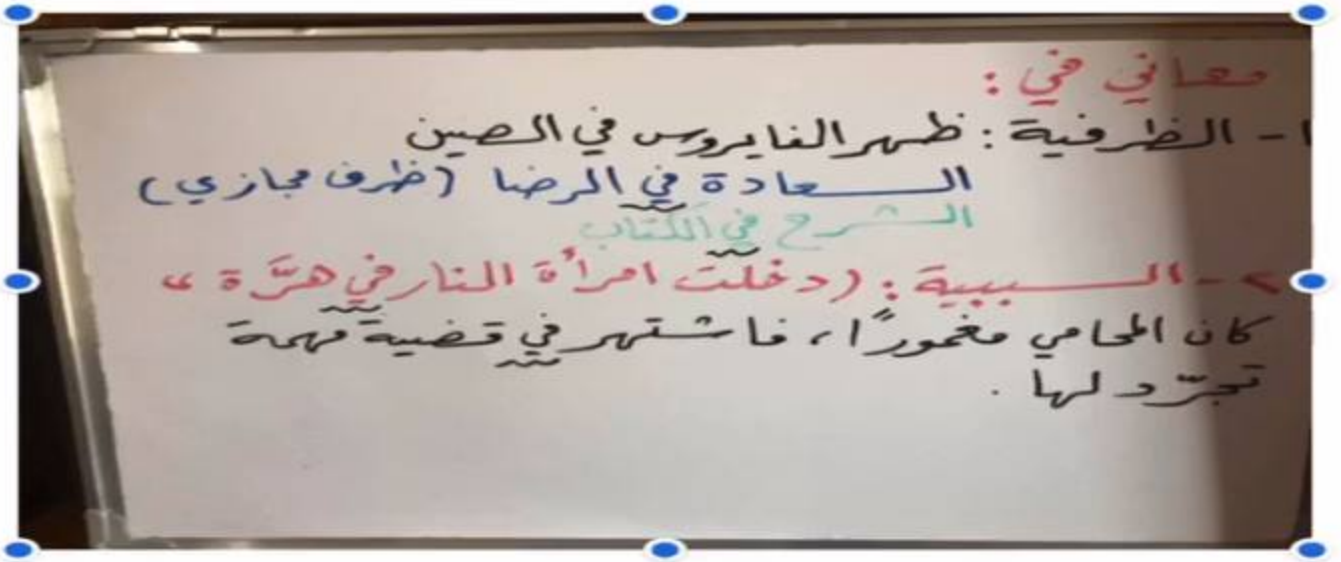 معاني في :
١- الظرفية : ظهر الفايروس في الصين
السعادة في الرضا (ظرف مجازي)
الشرح في الكتاب
٢- السببية : (دخلت امرأة النار في هرَّة "
كان المحامي مغمورًا، فاشتهر في قضية مهمة
تجرّد لها .